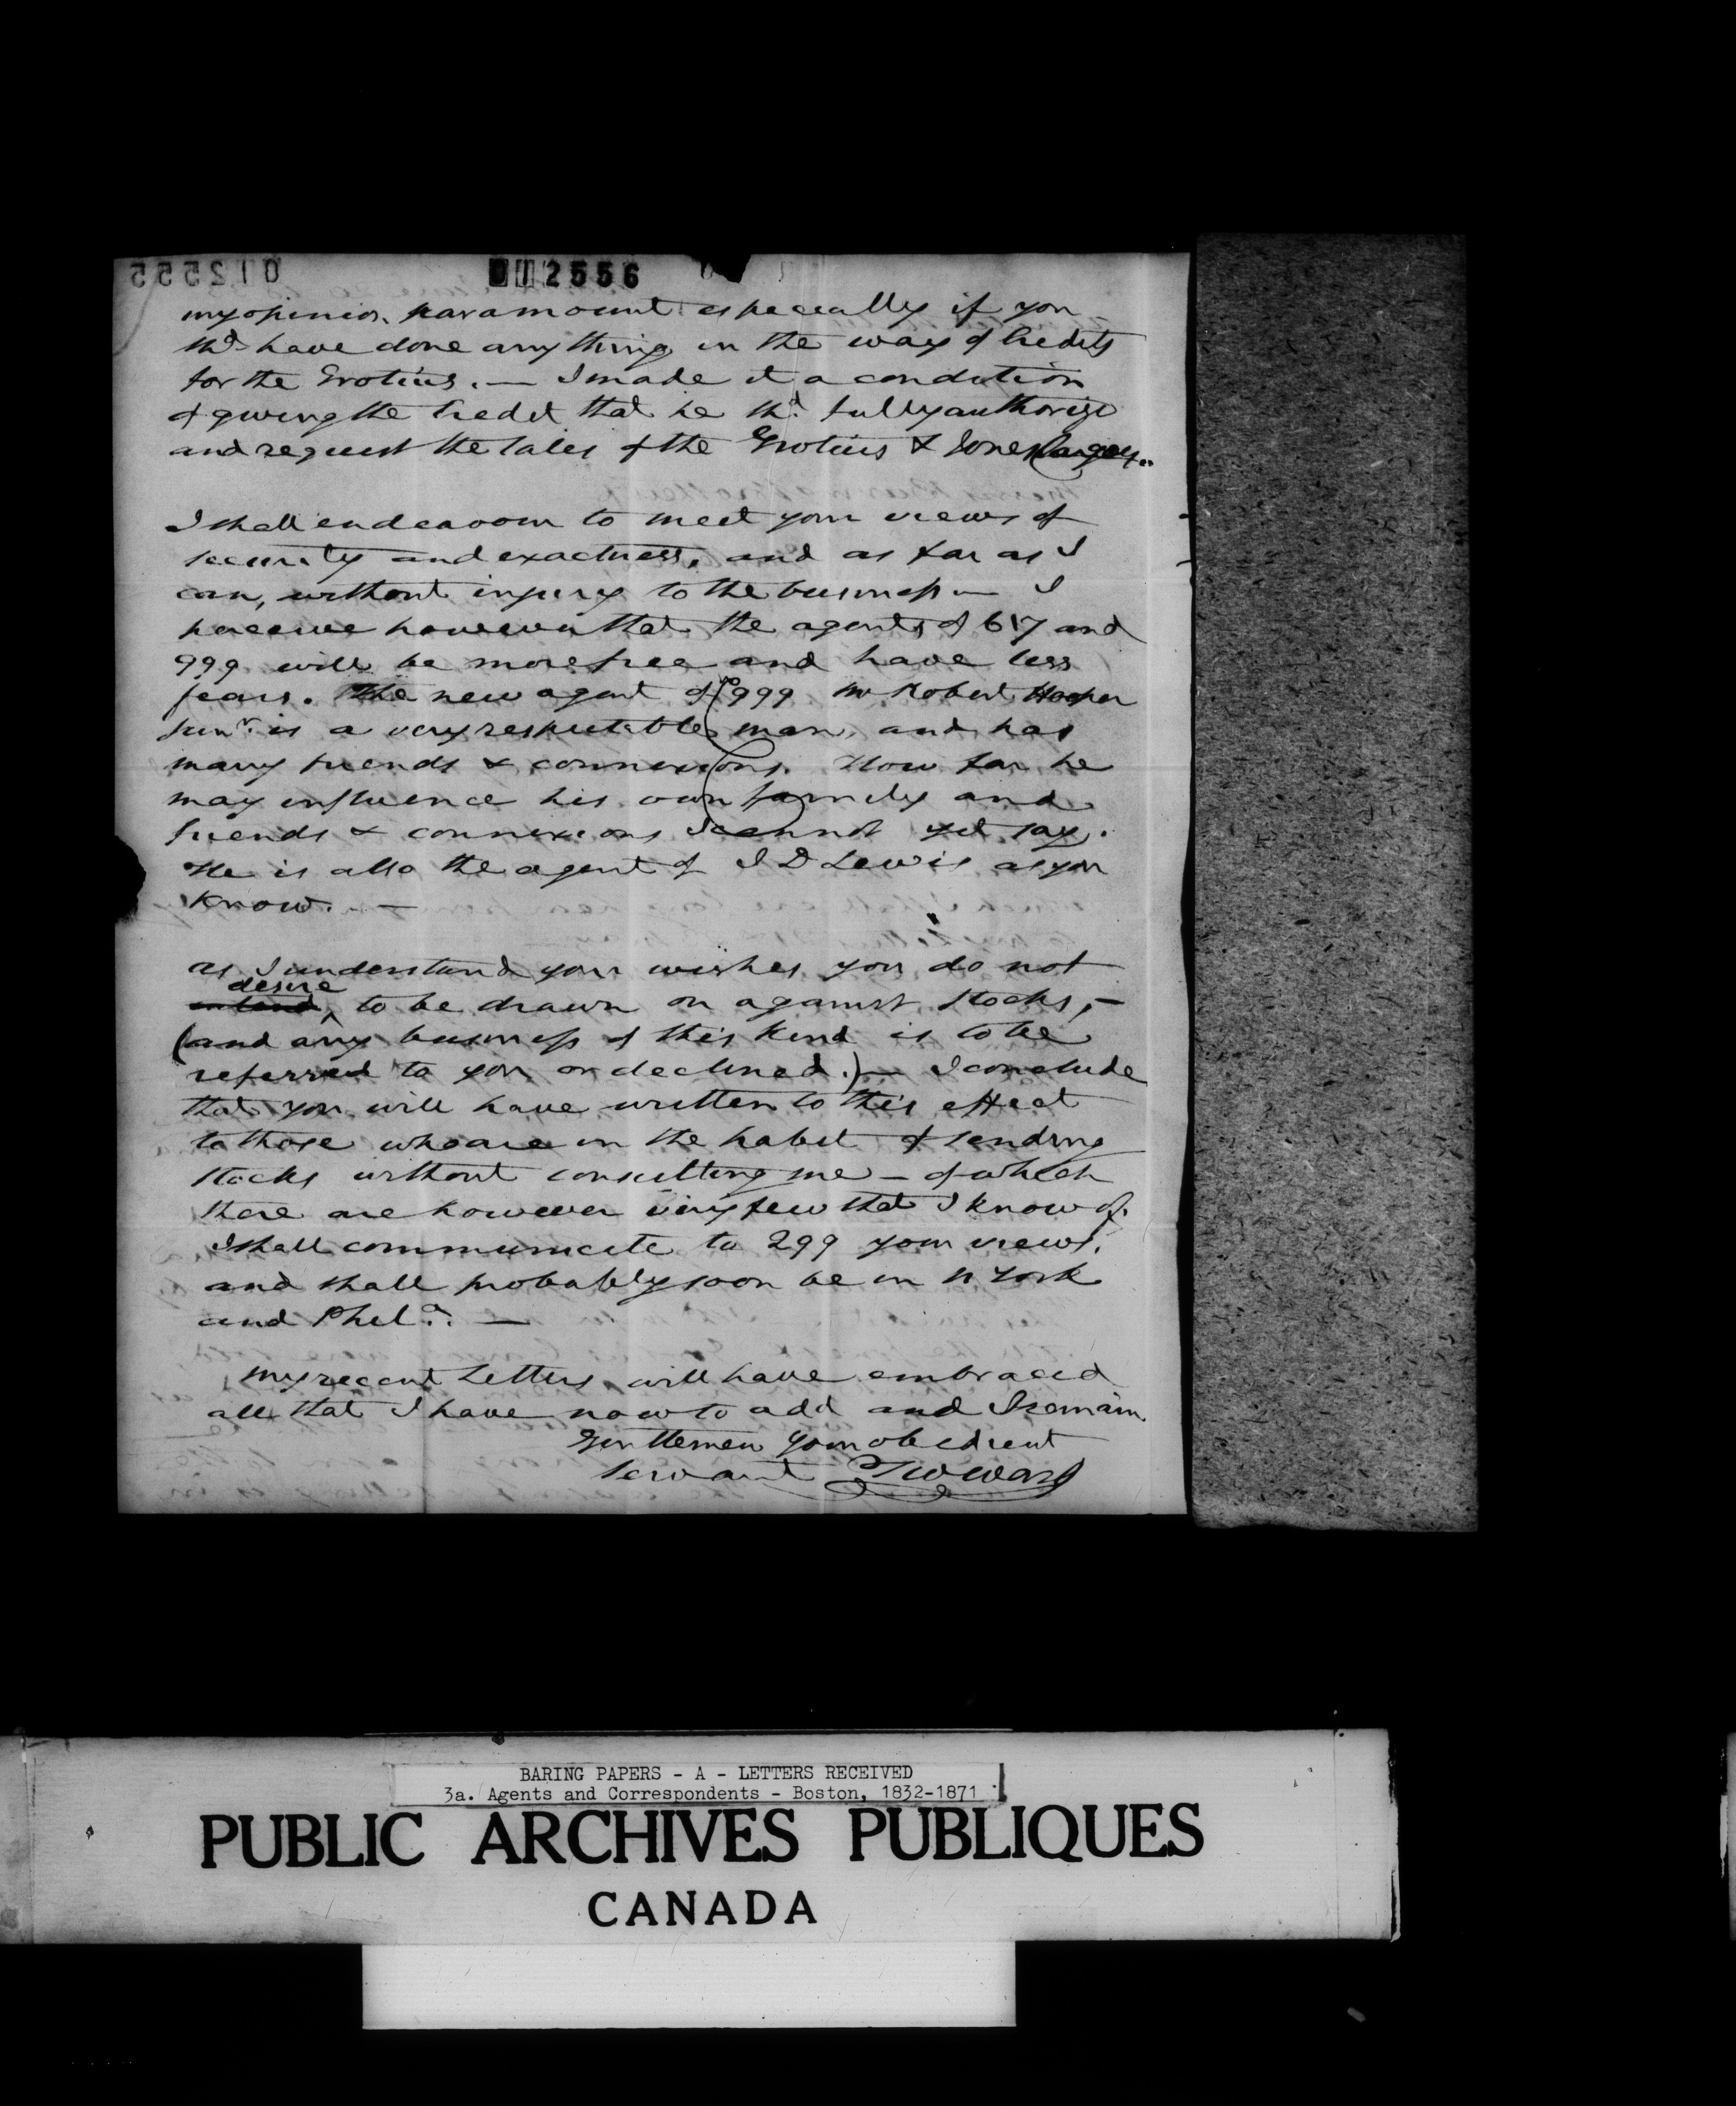 012555
012556
my opinion, paramount especially if you
shd have done any thing in the way of Credits
for the Grotius. — I made it a condition
of giving the Credit that he shd fully authorize
and request the sales of the Grotius & Jones Cargoes..
I shall endeavour to meet your views of
security and exactness, and as far as I
can, without injury to the business — I
perceive however that the agents of 617 and
999 will be more free and have less
fears. The new agent of 999 Mr Robert Hooper
junr. is a very respectable man, and has
many friends & connexions. How far he
may influence his own family and
friends & connexions I cannot yet say.
He is also the agent of J D Lewis as you
know. —
as I understand your wishes you do not
desire
intend, to be drawn on against stocks, —
(and any business of this kind is to be
referred to you or declined.) — I conclude
that you will have written to this effect
to those who are in the habit of sending
stocks without consulting me — of which
there are however very few that I know of.
I shall communicate to 299 your views,
and shall probably soon be in N York
and Phila. —
my recent Letters will have embraced
all that I have now to add and I remain
Gentlemen your obedient
servant T W Ward
BARING PAPERS - A - LETTERS RECEIVED
3a. Agents and Correspondents - Boston, 1832-1871
PUBLIC ARCHIVES PUBLIQUES
CANADA